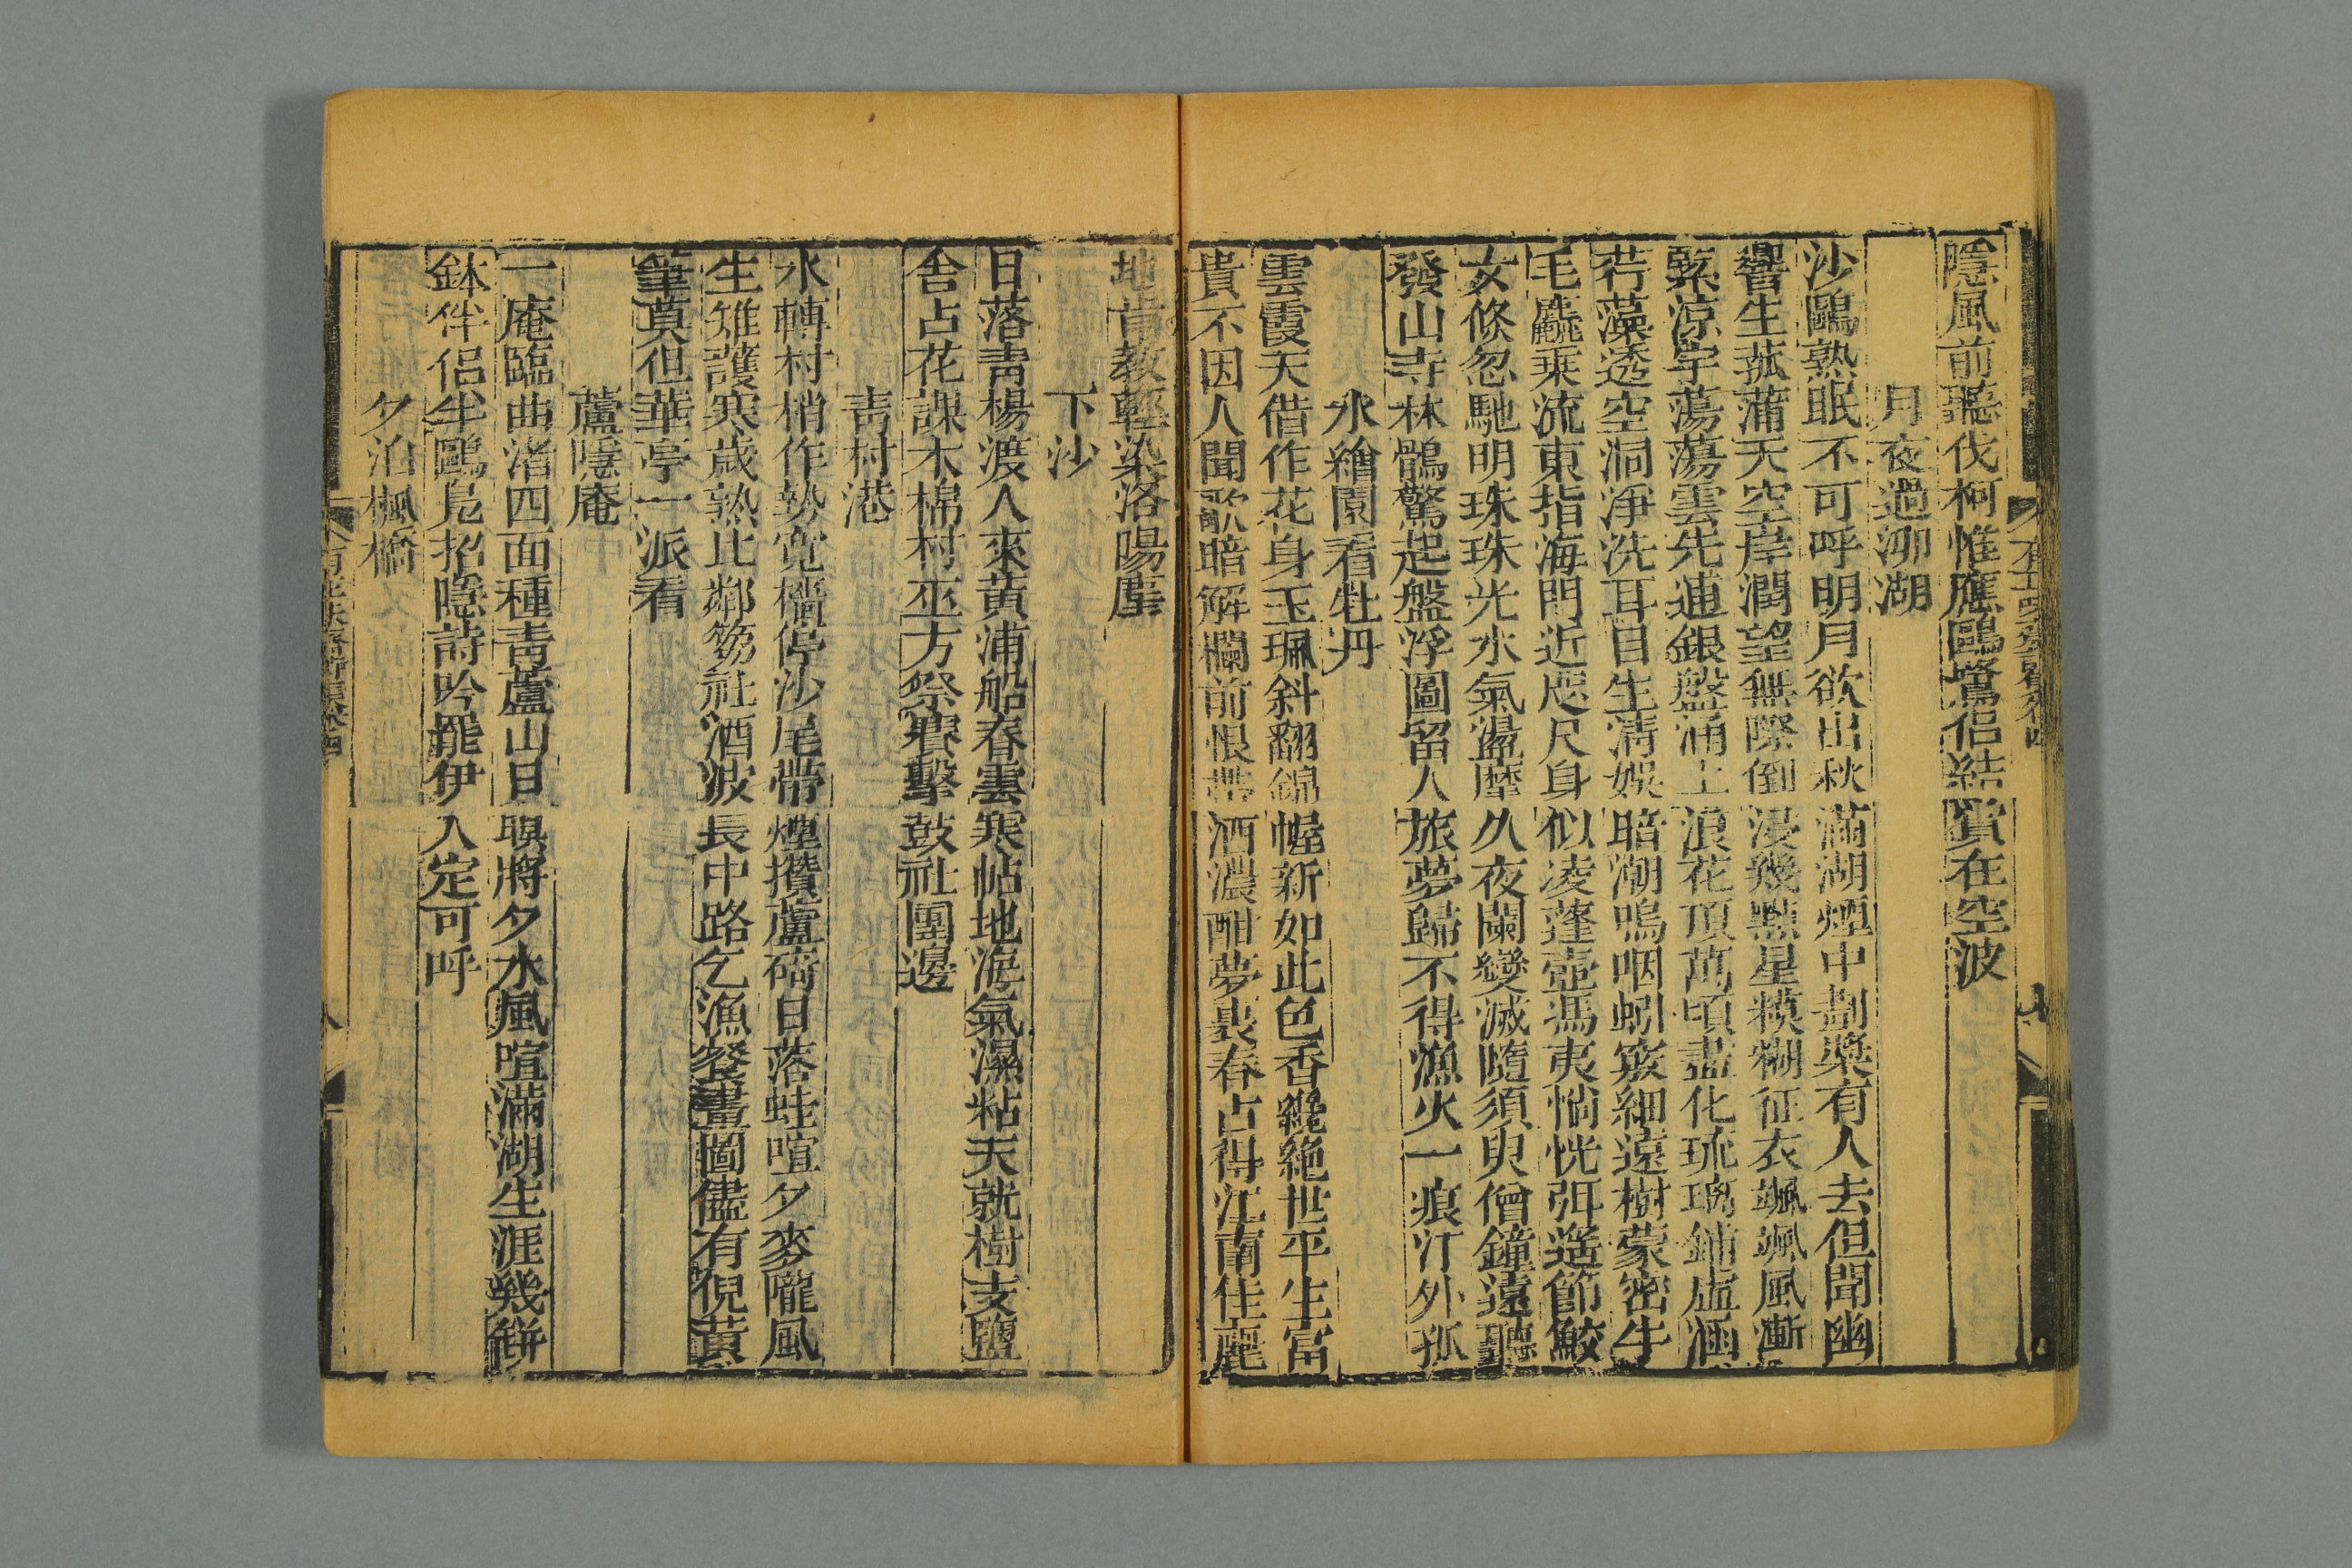 隱風前聽伐柯惟應鷗鷺侶結實在空波
月夜過泖湖
沙鷗熟眠不可呼明月欲出秋滿湖煙中劃槳有人去但聞幽
響生菰蒲天空岸濶望無際倒浸幾點星糢糊征衣颯颯風漸
緊涼宇蕩蕩雲先逋銀盤涌上浪花頂萬頃盡化琉璃鋪虛涵
荇藻透空洞淨洗耳目生淸娛暗潮嗚咽蚓竅細遠樹蒙密牛
毛麤乗流東指海門近咫尺身似凌蓬壺馮夷惝恍弭遙節鮫
女倏忽馳明珠珠光水氣盪摩久夜闌變滅隨須臾僧鐘遠聽
發山寺林鶻驚起盤浮圖留人旅夢歸不得漁火一痕汀外孤
水繪園看牡丹
雲霞天借作花身玉珮斜翻錦幄新如此色香纔絕世平生富
貴不因人聞歌暗解欄前恨帶酒濃酣夢裏春占得江南住麗
地肯教輕染洛陽塵
下沙
日落靑楊渡人來黃浦船春雲寒帖地海氣濕粘天就樹支鹽
舍占花課木棉村巫方祭賽擊鼓社團邊
靑村港
水轉村梢作勢寬檣停沙尾帶煙攢蘆碕日落蛙喧夕麥隴風
生雉護寒歲熟比鄰篘社酒波長中路乞漁餐畫圖儘有倪黃
筆莫但華亭一派看
蘆隱庵
一庵臨曲渚四面種靑蘆山日暝將夕水風喧滿湖生涯幾缾
鉢伴侶半鷗鳬招隱詩吟罷伊人定可呼
夕泊楓橋